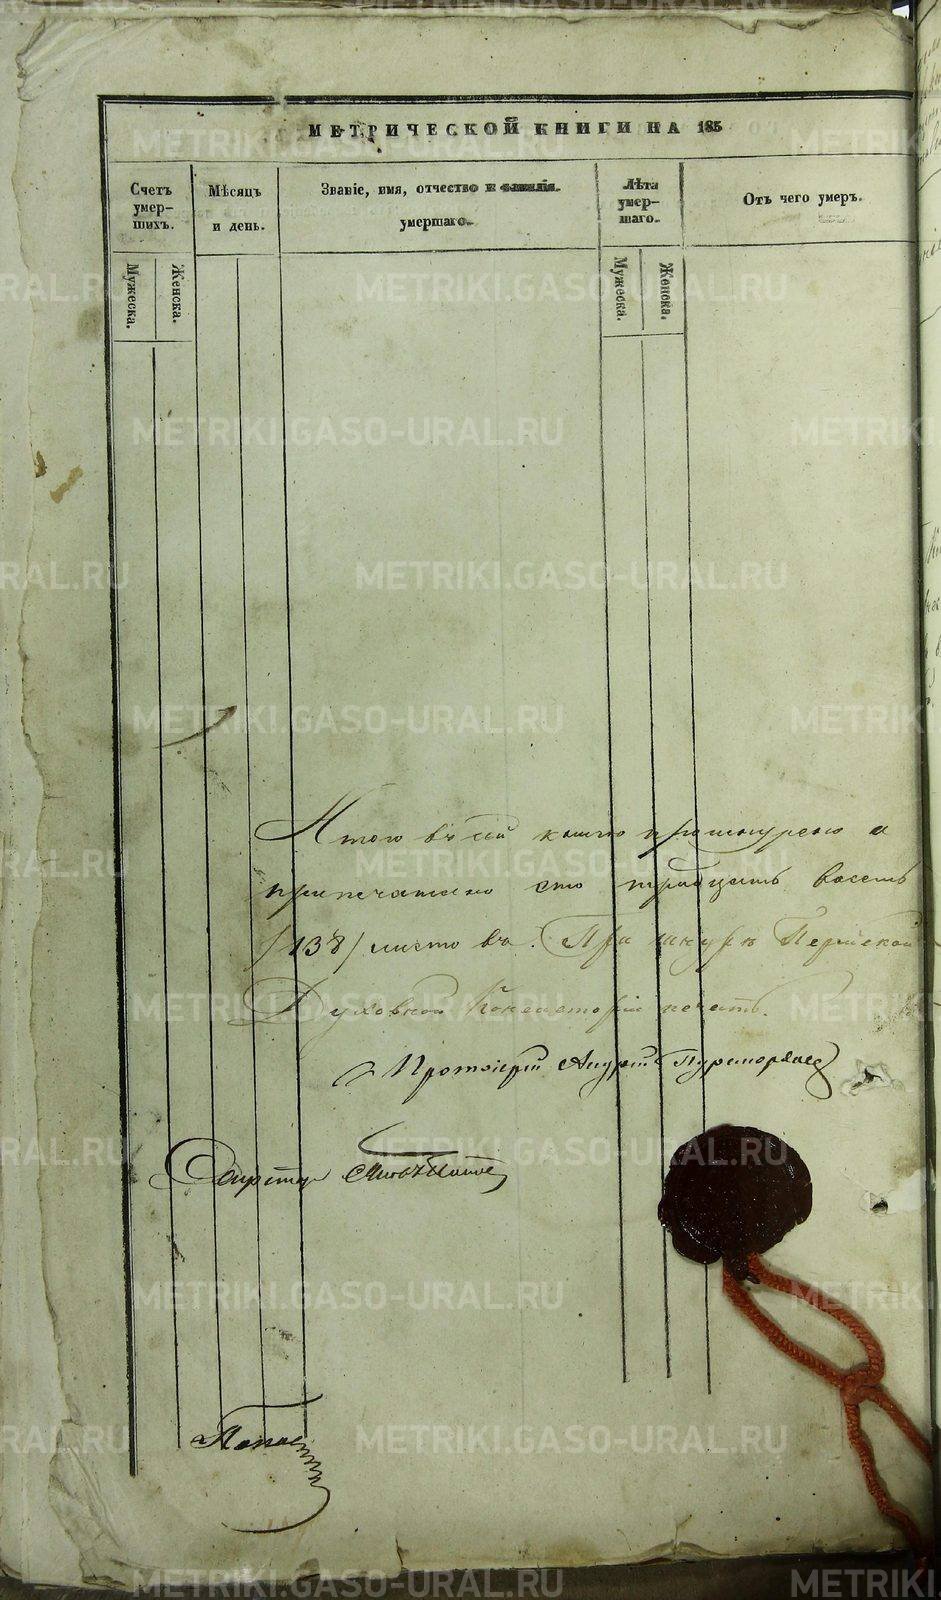 МЕТРИЧЕСКОЙ КНИГИ НА 185
Счетъ умер-
шихъ.
Мужеска.
Женска.
Мѣсяцъ
и день.
Званіе, имя, отчество и фамилія
умершаго.
Лѣта
умер-
шаго.
Мужеска.
Женска.
Отъ чего умеръ.
Итого въ сей книгѣ прошнурено и
припечатано сто тридцать восемь
/138/ листовъ. При шнурѣ Пермской
Духовной Консисторіи печать.
Протоіерей Андрей
Секретарь
METRIKI.GASO-URAL.RU